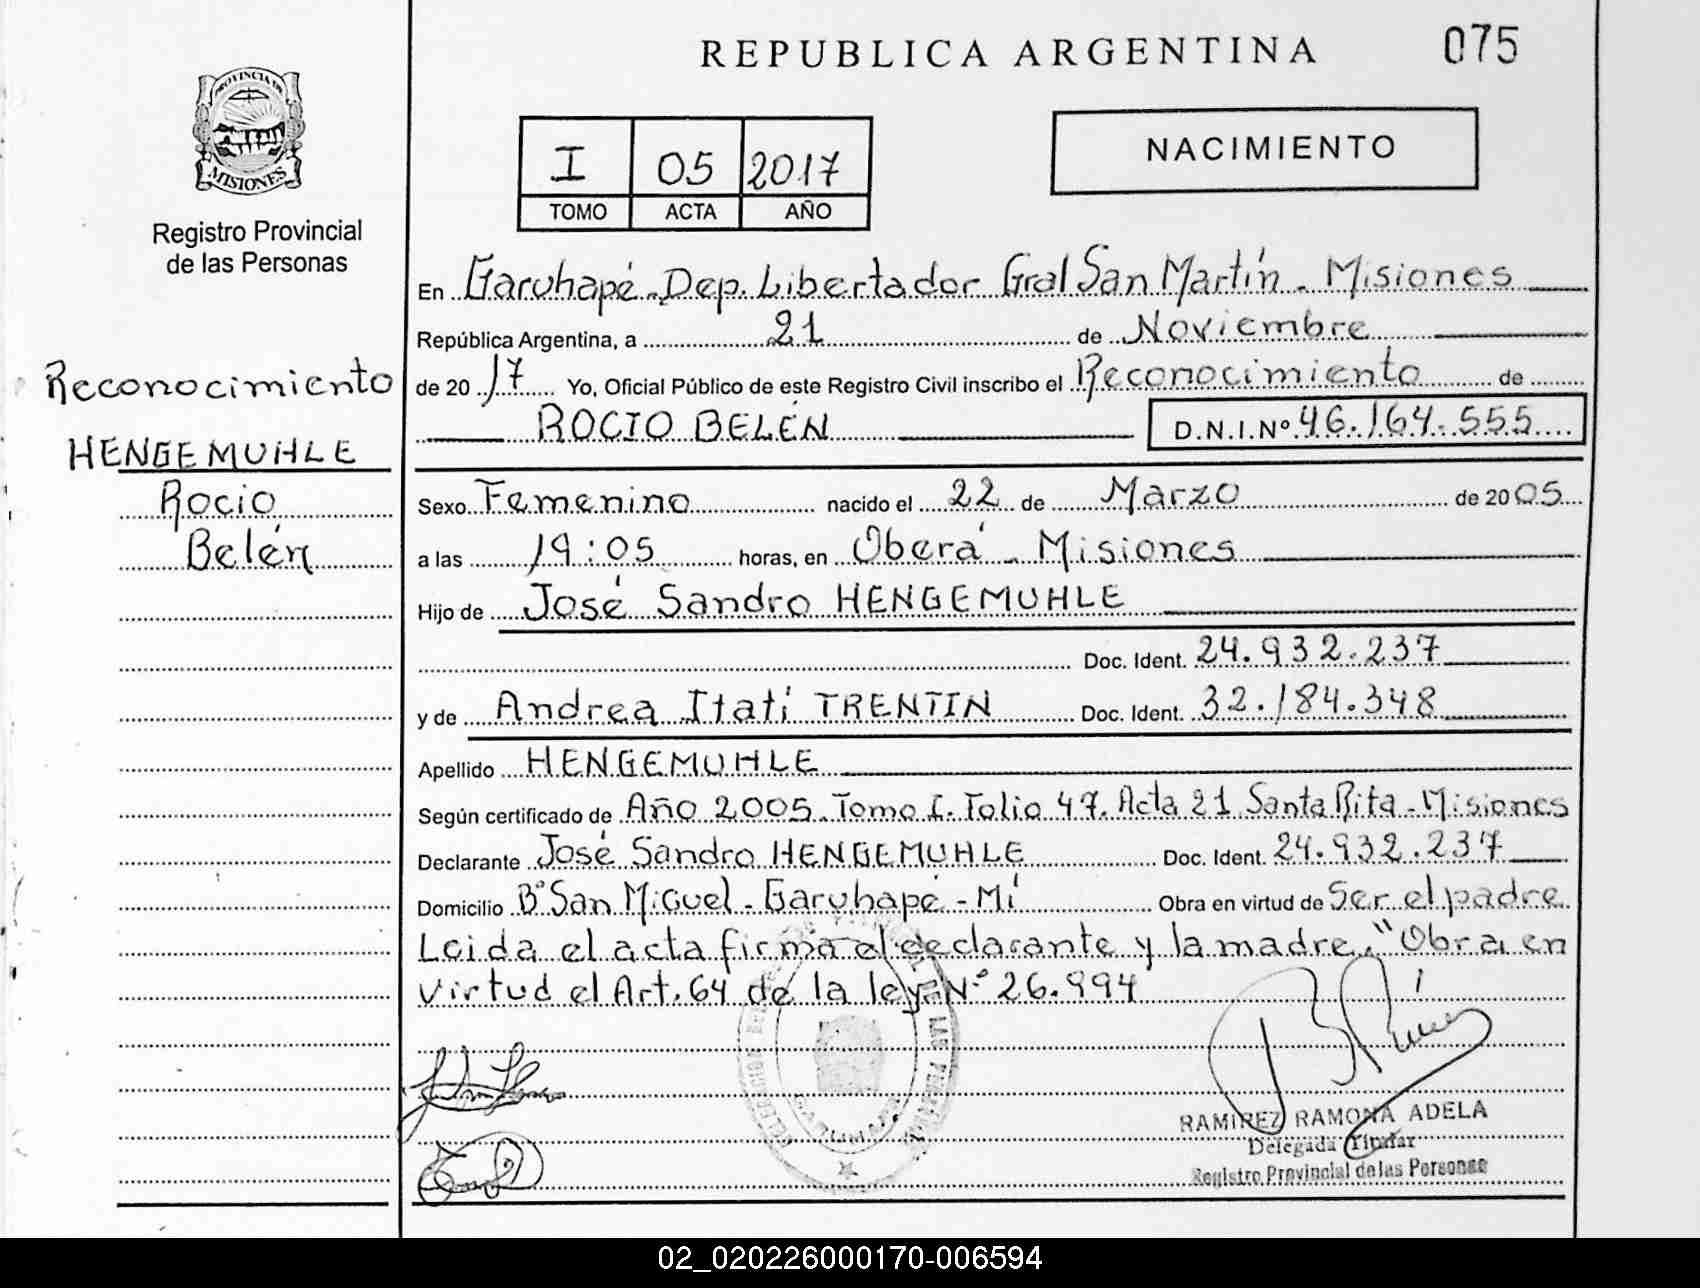 REPUBLICA ARGENTINA
075
PROVINCIA DE
MISIONES
Registro Provincial
de las Personas
I 05 2017
TOMO ACTA AÑO
NACIMIENTO
Reconocimiento
HENGEMUHLE
Rocio
Belén
En Garuhapé - Dep. Libertador Gral San Martín - Misiones
República Argentina, a 21 de Noviembre
de 2017 Yo, Oficial Público de este Registro Civil inscribo el Reconocimiento de
ROCIO BELÉN D.N.I.Nº 46.164.555
Sexo Femenino nacido el 22 de Marzo de 2005
a las 19:05 horas, en Oberá - Misiones
Hijo de José Sandro HENGEMUHLE
Doc. Ident. 24.932.237
y de Andrea Itatí TRENTIN Doc. Ident. 32.184.348
Apellido HENGEMUHLE
Según certificado de Año 2005. Tomo I. Folio 47. Acta 21 Santa Rita - Misiones
Declarante José Sandro HENGEMUHLE Doc. Ident. 24.932.237
Domicilio Bº San Miguel - Garuhapé - Mí Obra en virtud de Ser el padre
Leida el acta firma el declarante y la madre. "Obra en
virtud el Art. 64 de la ley Nº 26.994
RAMIREZ RAMONA ADELA
Delegada Titular
Registro Provincial de las Personas
02_020226000170-006594